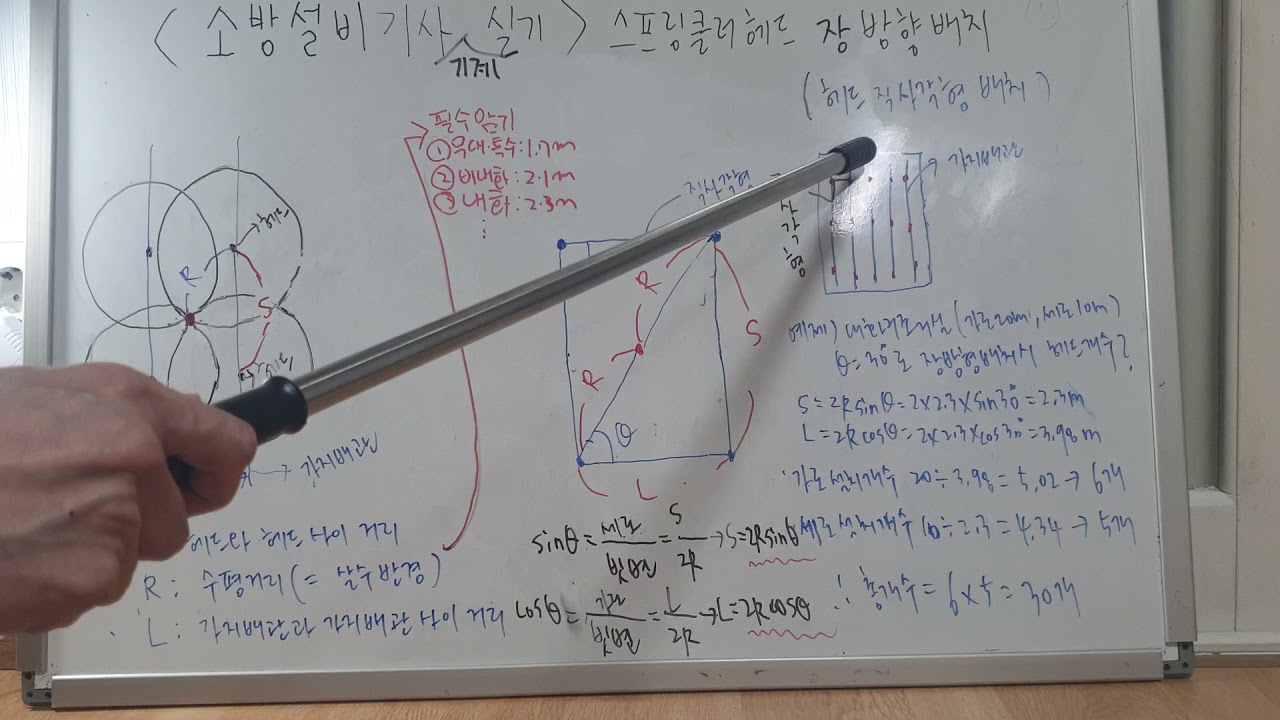 <소방설비기사 실기> 스프링클러헤드 장방향배치
기계
(헤드 직사각형 배치)
필수암기
①무대·특수:1.7m
②비내화:2.1m
③내화:2.3m
⋮
직사각형
사각형
→가지배관
→헤드
R
S
헤드
R
R
S
θ
L
→가지배관
예제) 내화건축시설(가로20m, 세로10m)
θ=30°로 장방형배치시 헤드개수?
S=2Rsinθ=2×2.3×sin30°=2.3m
L=2Rcosθ=2×2.3×cos30°=3.98m
가로설치개수 20÷3.98=5.02→6개
세로설치개수 10÷2.3=4.34→5개
∴총개수=6×5=30개
헤드와 헤드사이 거리
R: 수평거리(=살수반경)
L: 가지배관과 가지배관 사이 거리
sinθ=세로/빗변=S/2R→S=2Rsinθ
cosθ=가로/빗변=L/2R→L=2Rcosθ